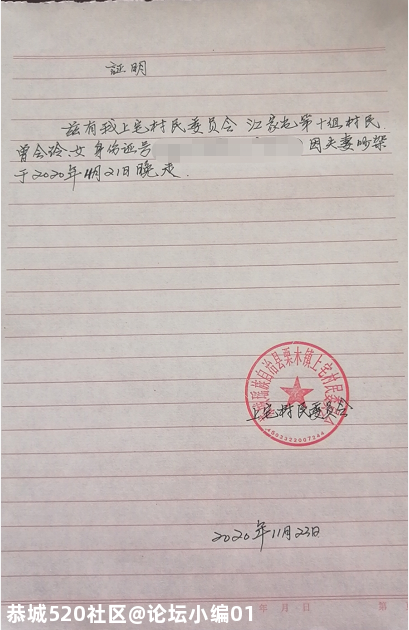 证明
兹有我上宅村民委员会江家屯第十组村民
曾会玲、女身份证号 因夫妻吵架
于2020年4月21日晚走.
瑶族自治县栗木镇上宅村民委员会
上宅村民委员会
2020年11月23日
年 月 日 第
恭城520社区@论坛小编01